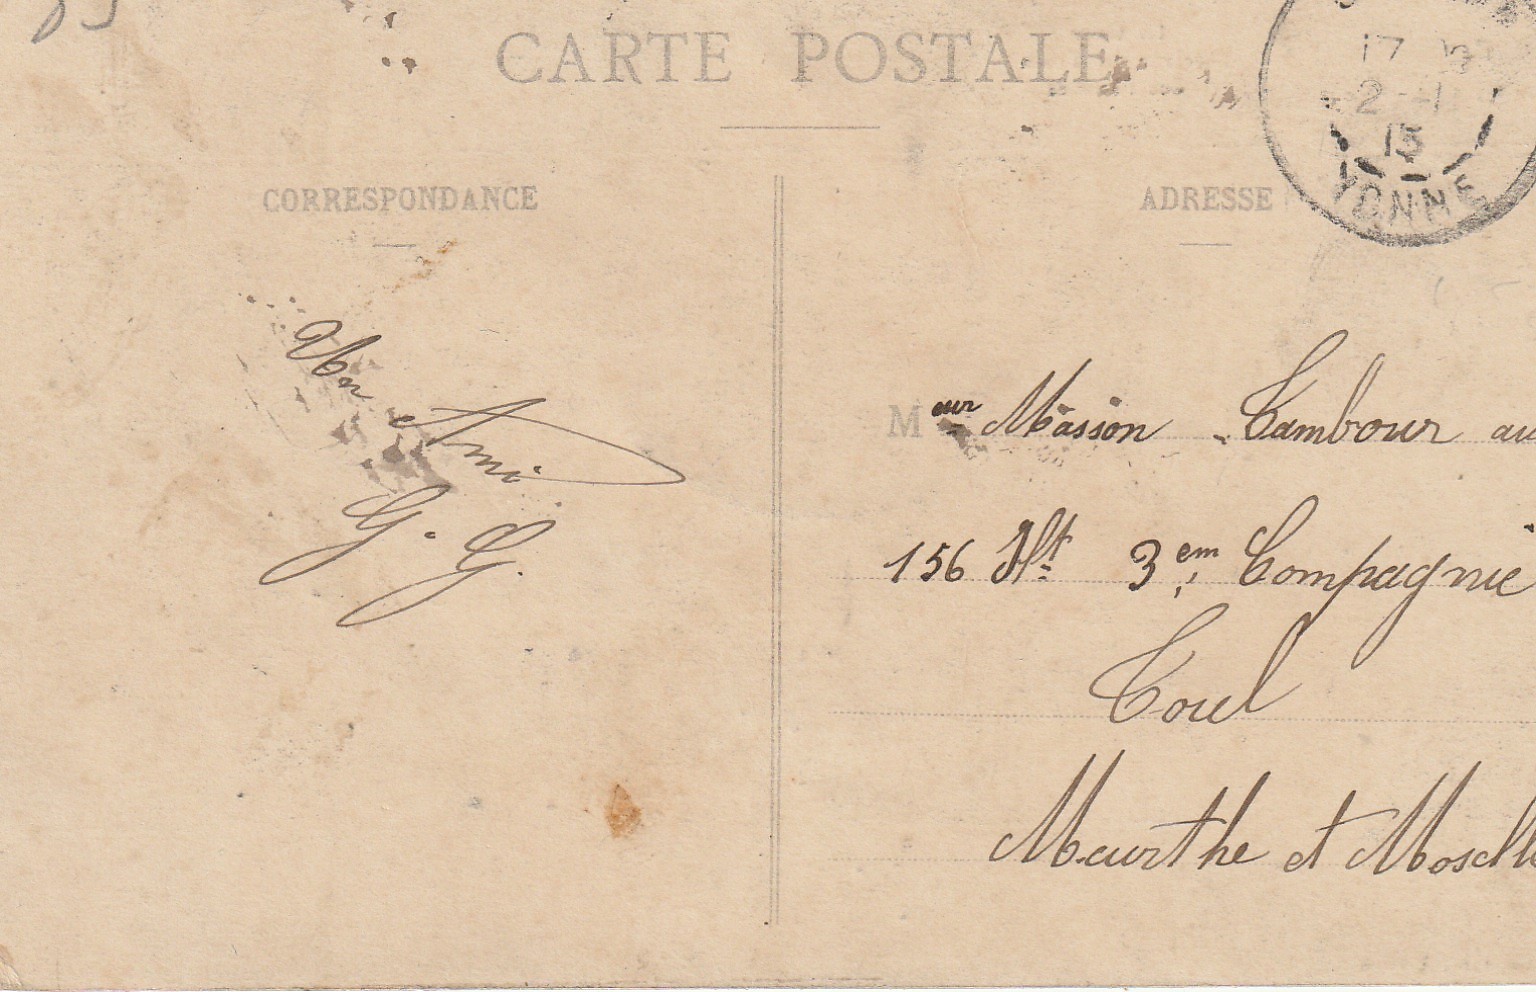 CARTE POSTALE
17
2 - 1
13
YONNE
CORRESPONDANCE
ADRESSE
Un
Ami
G. G.
Meur Masson Tambour au
156 Rt 3em Compagnie
Toul
Meurthe et Moselle